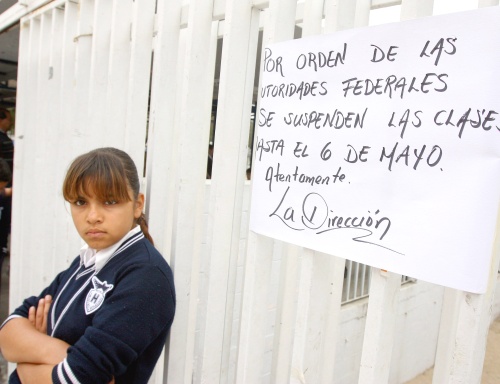 POR ORDEN DE LAS
UTORIDADES FEDERALES
SE SUSPENDEN LAS CLASES
ASTA EL 6 DE MAYO.
Atentamente.
La Dirección
H